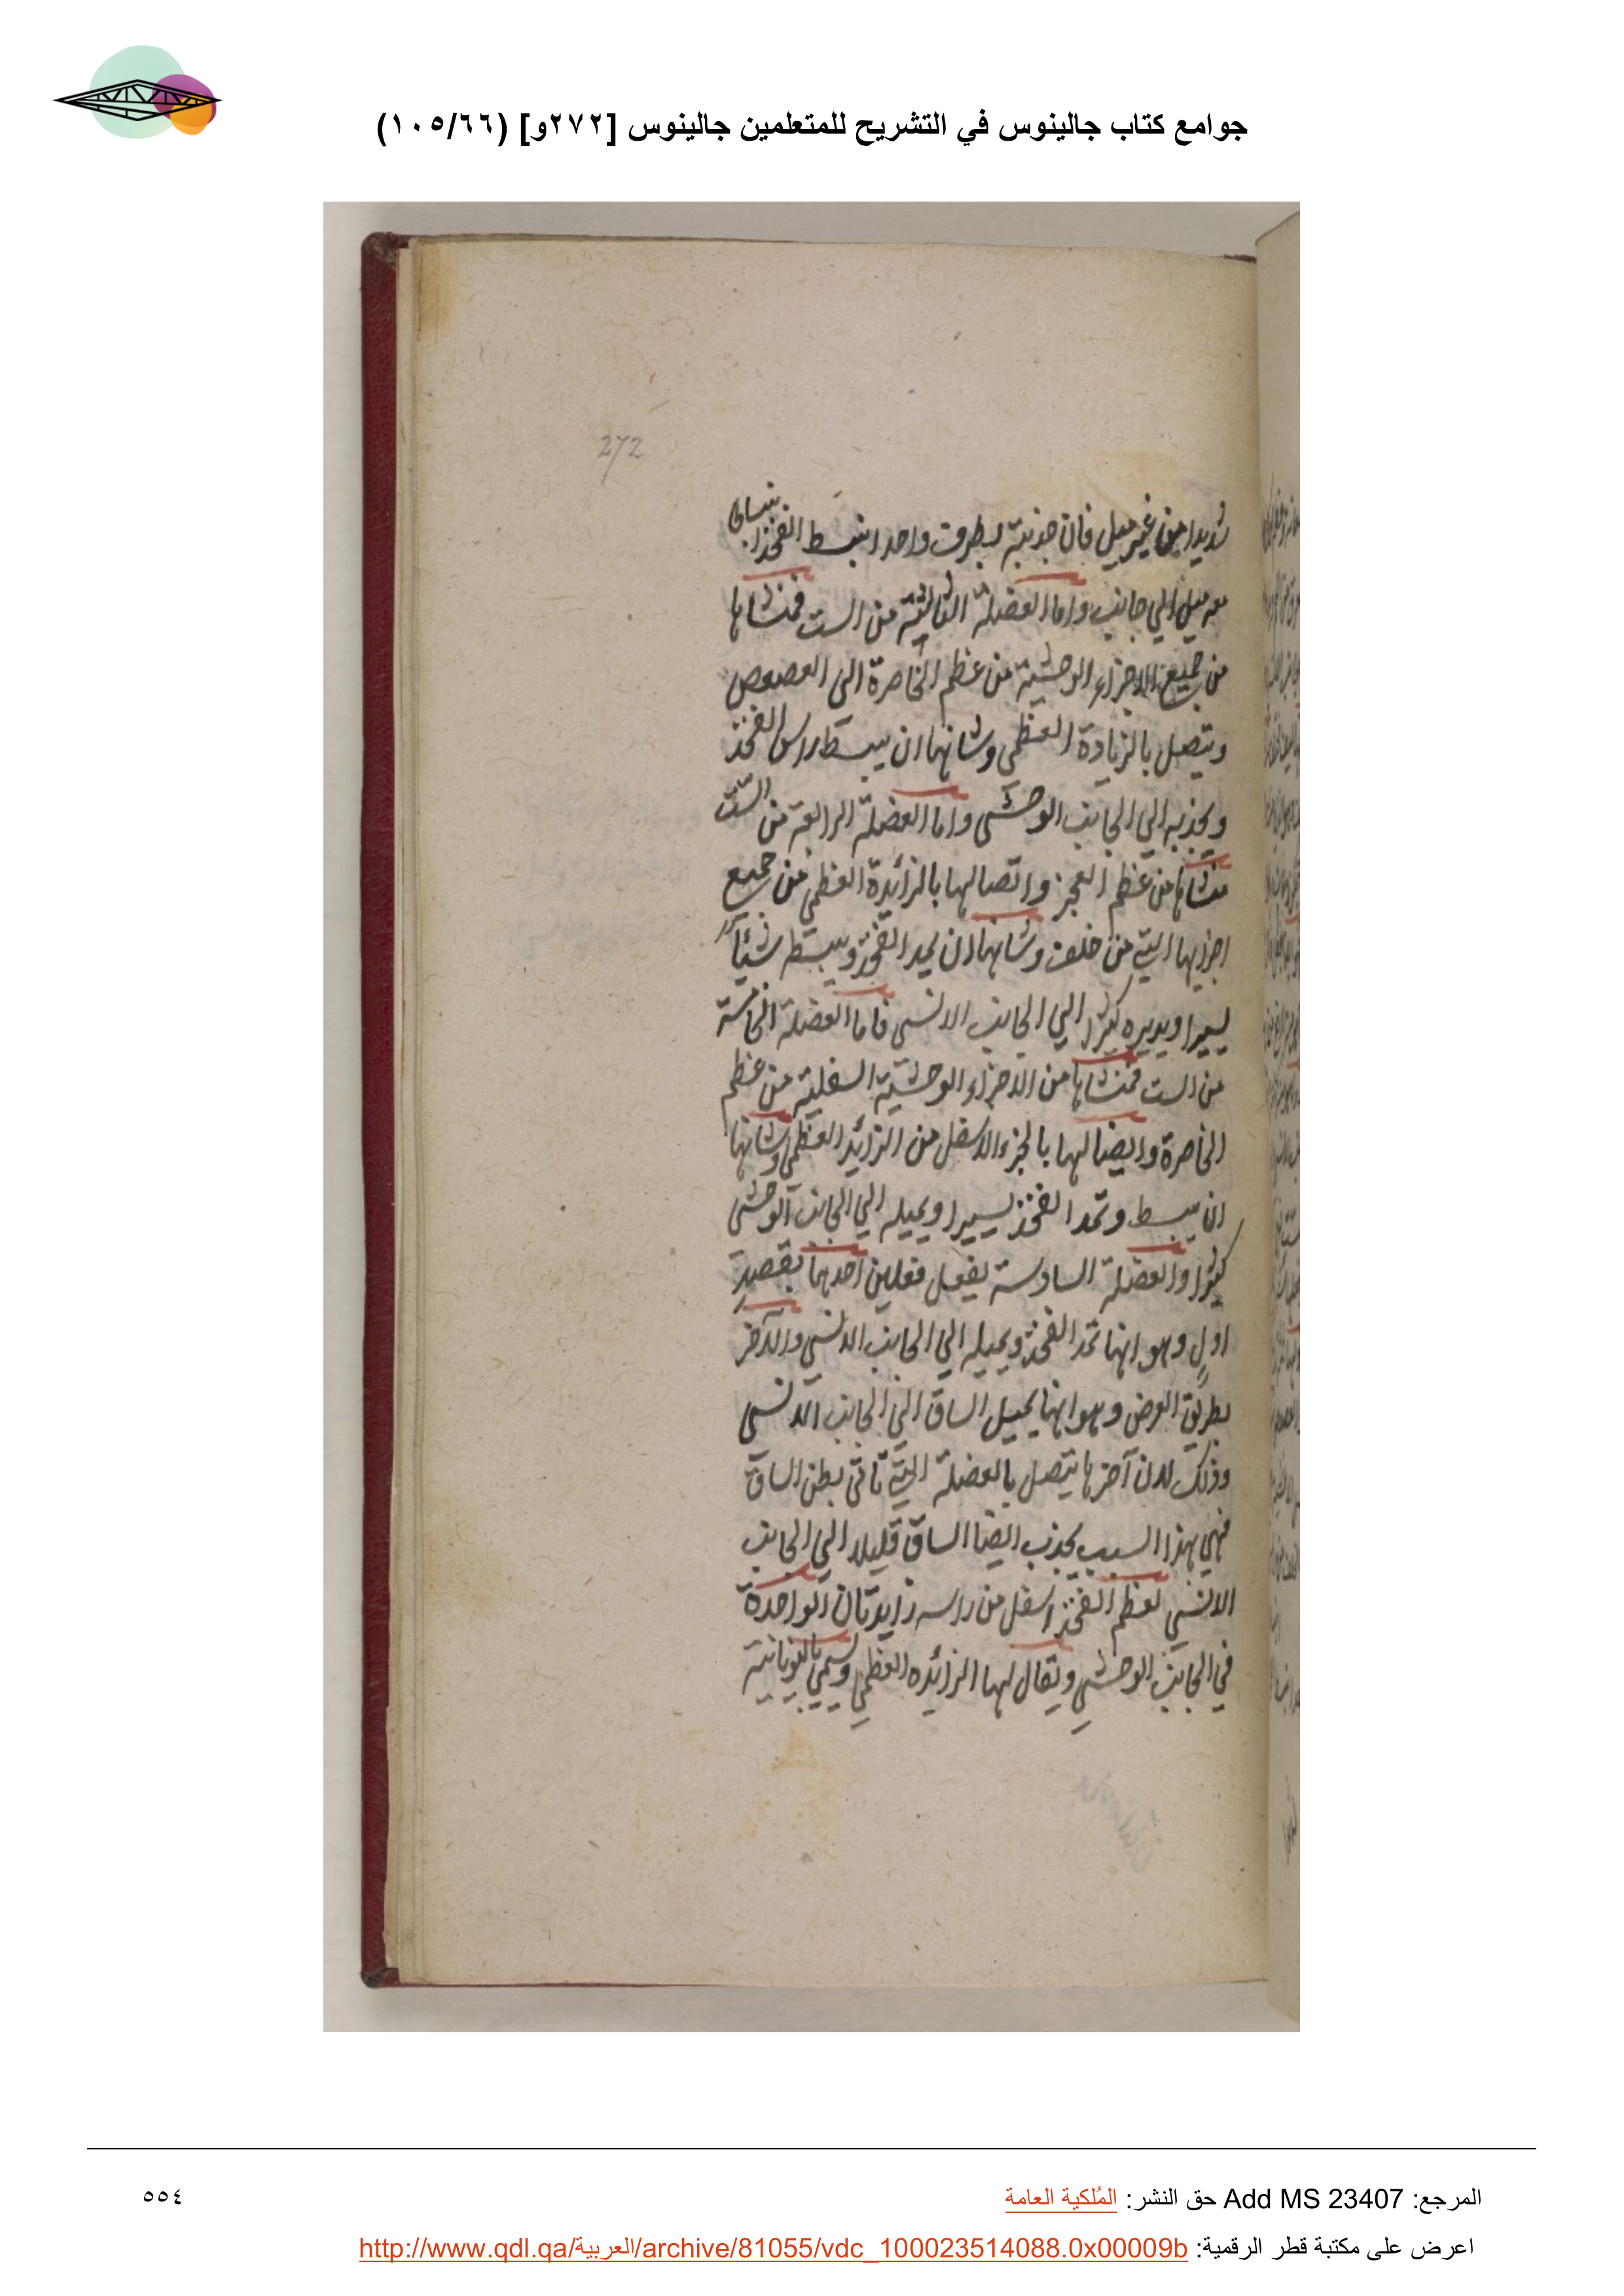 جوامع كتاب جالينوس في التشريح للمتعلمين جالينوس [٢٧٢و] (١٠٥/٦٦)
272
شديدا من غير ميل فان جذبته بطرف واحد انبسط الفخذ انبساطا
معه ميل الي جانب واما العضلة الثالثة من الست فمنشاها
من جميع الاجزاء الوحشية من عظم الخاصرة الى العصعص
ويتصل بالزيادة العظمى وشانها ان يبسط راس الفخذ
ويجذبه الي الجانب الوحشى واما العضلة الرابعة من الست
منشاها من عظم العجز واتصالها بالزائدة العظمي من جميع
اجزايها التي من خلف وشانها ان يمد الفخذ ويبسط شيئا
يسيرا ويديره كثيرا الي الجانب الانسى فاما العضلة الخامسة
من الست فمنشاها من الاجزاء الوحشية السفلية من عظم
الخاصرة وايضا لها بالجزء الاسفل من الزائد العظمي وشانها
ان يبسط وتمد الفخذ يسيرا ويميله الي الجانب الوحشي
كثيرا والعضلة السادسة يفعل فعلين احدهما بقصد
اول وهو انها تمد الفخذ ويميله الي الجانب الانسي والآخر
بطريق العرض وهو انها يميل الساق الي الجانب الانسى
وذلك لان آخرها يتصل بالعضلة التي تاتى بطن الساق
فهي بهذا السبب يجذب ايضا الساق قليلا الي الجانب
الانسي لعظم الفخذ اسفل من راسه زايدتان الواحدة
في الجانب الوحشي ويقال لها الزائده العظمي ويسمي باليونانية
المرجع: Add MS 23407 حق النشر: المُلكية العامة
٥٥٤
اعرض على مكتبة قطر الرقمية: http://www.qdl.qa/العربية/archive/81055/vdc_100023514088.0x00009b